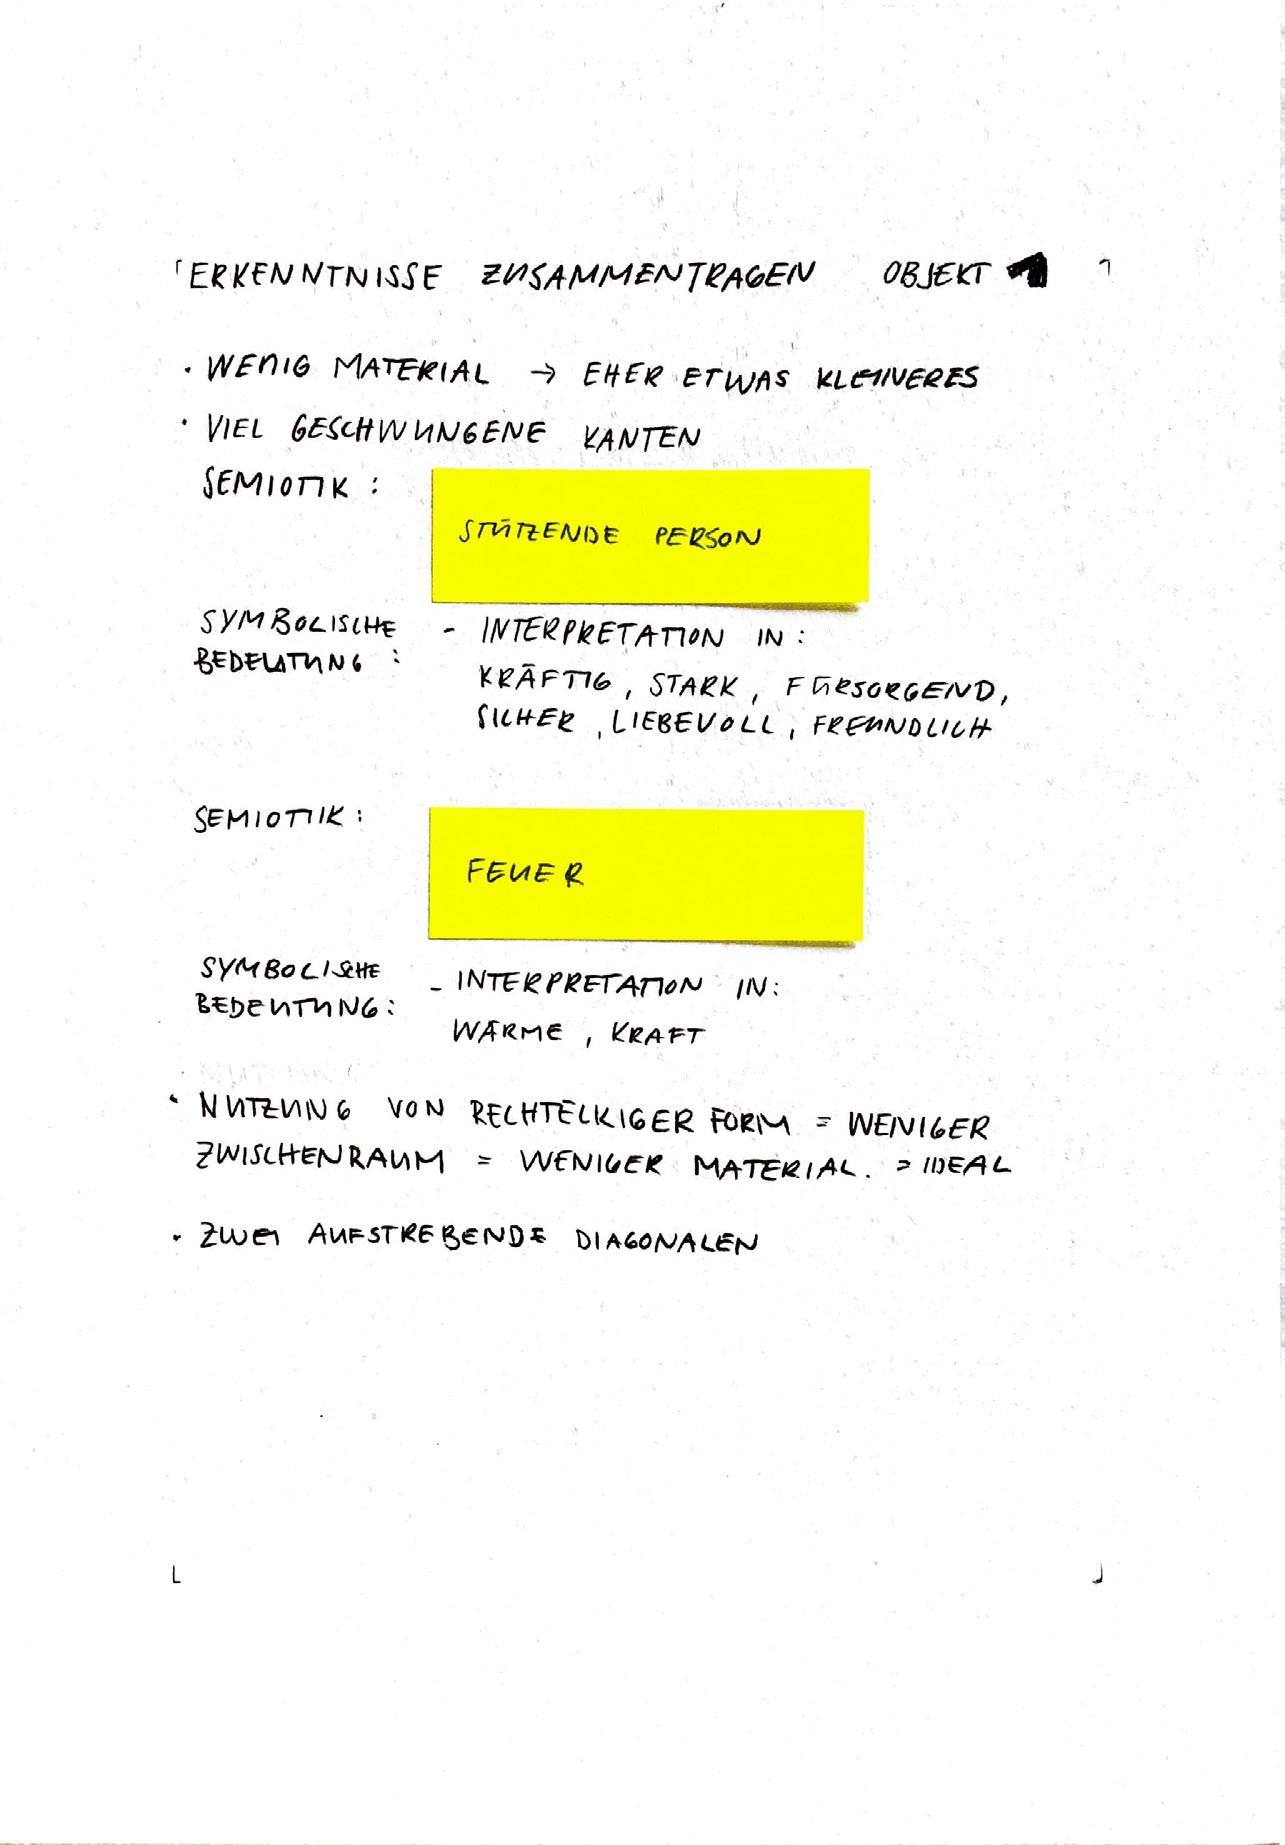 ERKENNTNISSE ZUSAMMENTRAGEN OBJEKT 1
· WENIG MATERIAL → EHER ETWAS KLEINERES
· VIEL GESCHWUNGENE KANTEN
SEMIOTIK :
STÜTZENDE PERSON
SYMBOLISCHE
BEDEUTUNG :
- INTERPRETATION IN :
KRÄFTIG , STARK , FÜRSORGEND,
SICHER , LIEBEVOLL , FREUNDLICH
SEMIOTIK :
FEUER
SYMBOLISCHE
BEDEUTUNG :
- INTERPRETATION IN :
WÄRME , KRAFT
· NUTZUNG VON RECHTECKIGER FORM = WENIGER
ZWISCHENRAUM = WENIGER MATERIAL. = IDEAL
· ZWEI AUFSTREBENDE DIAGONALEN